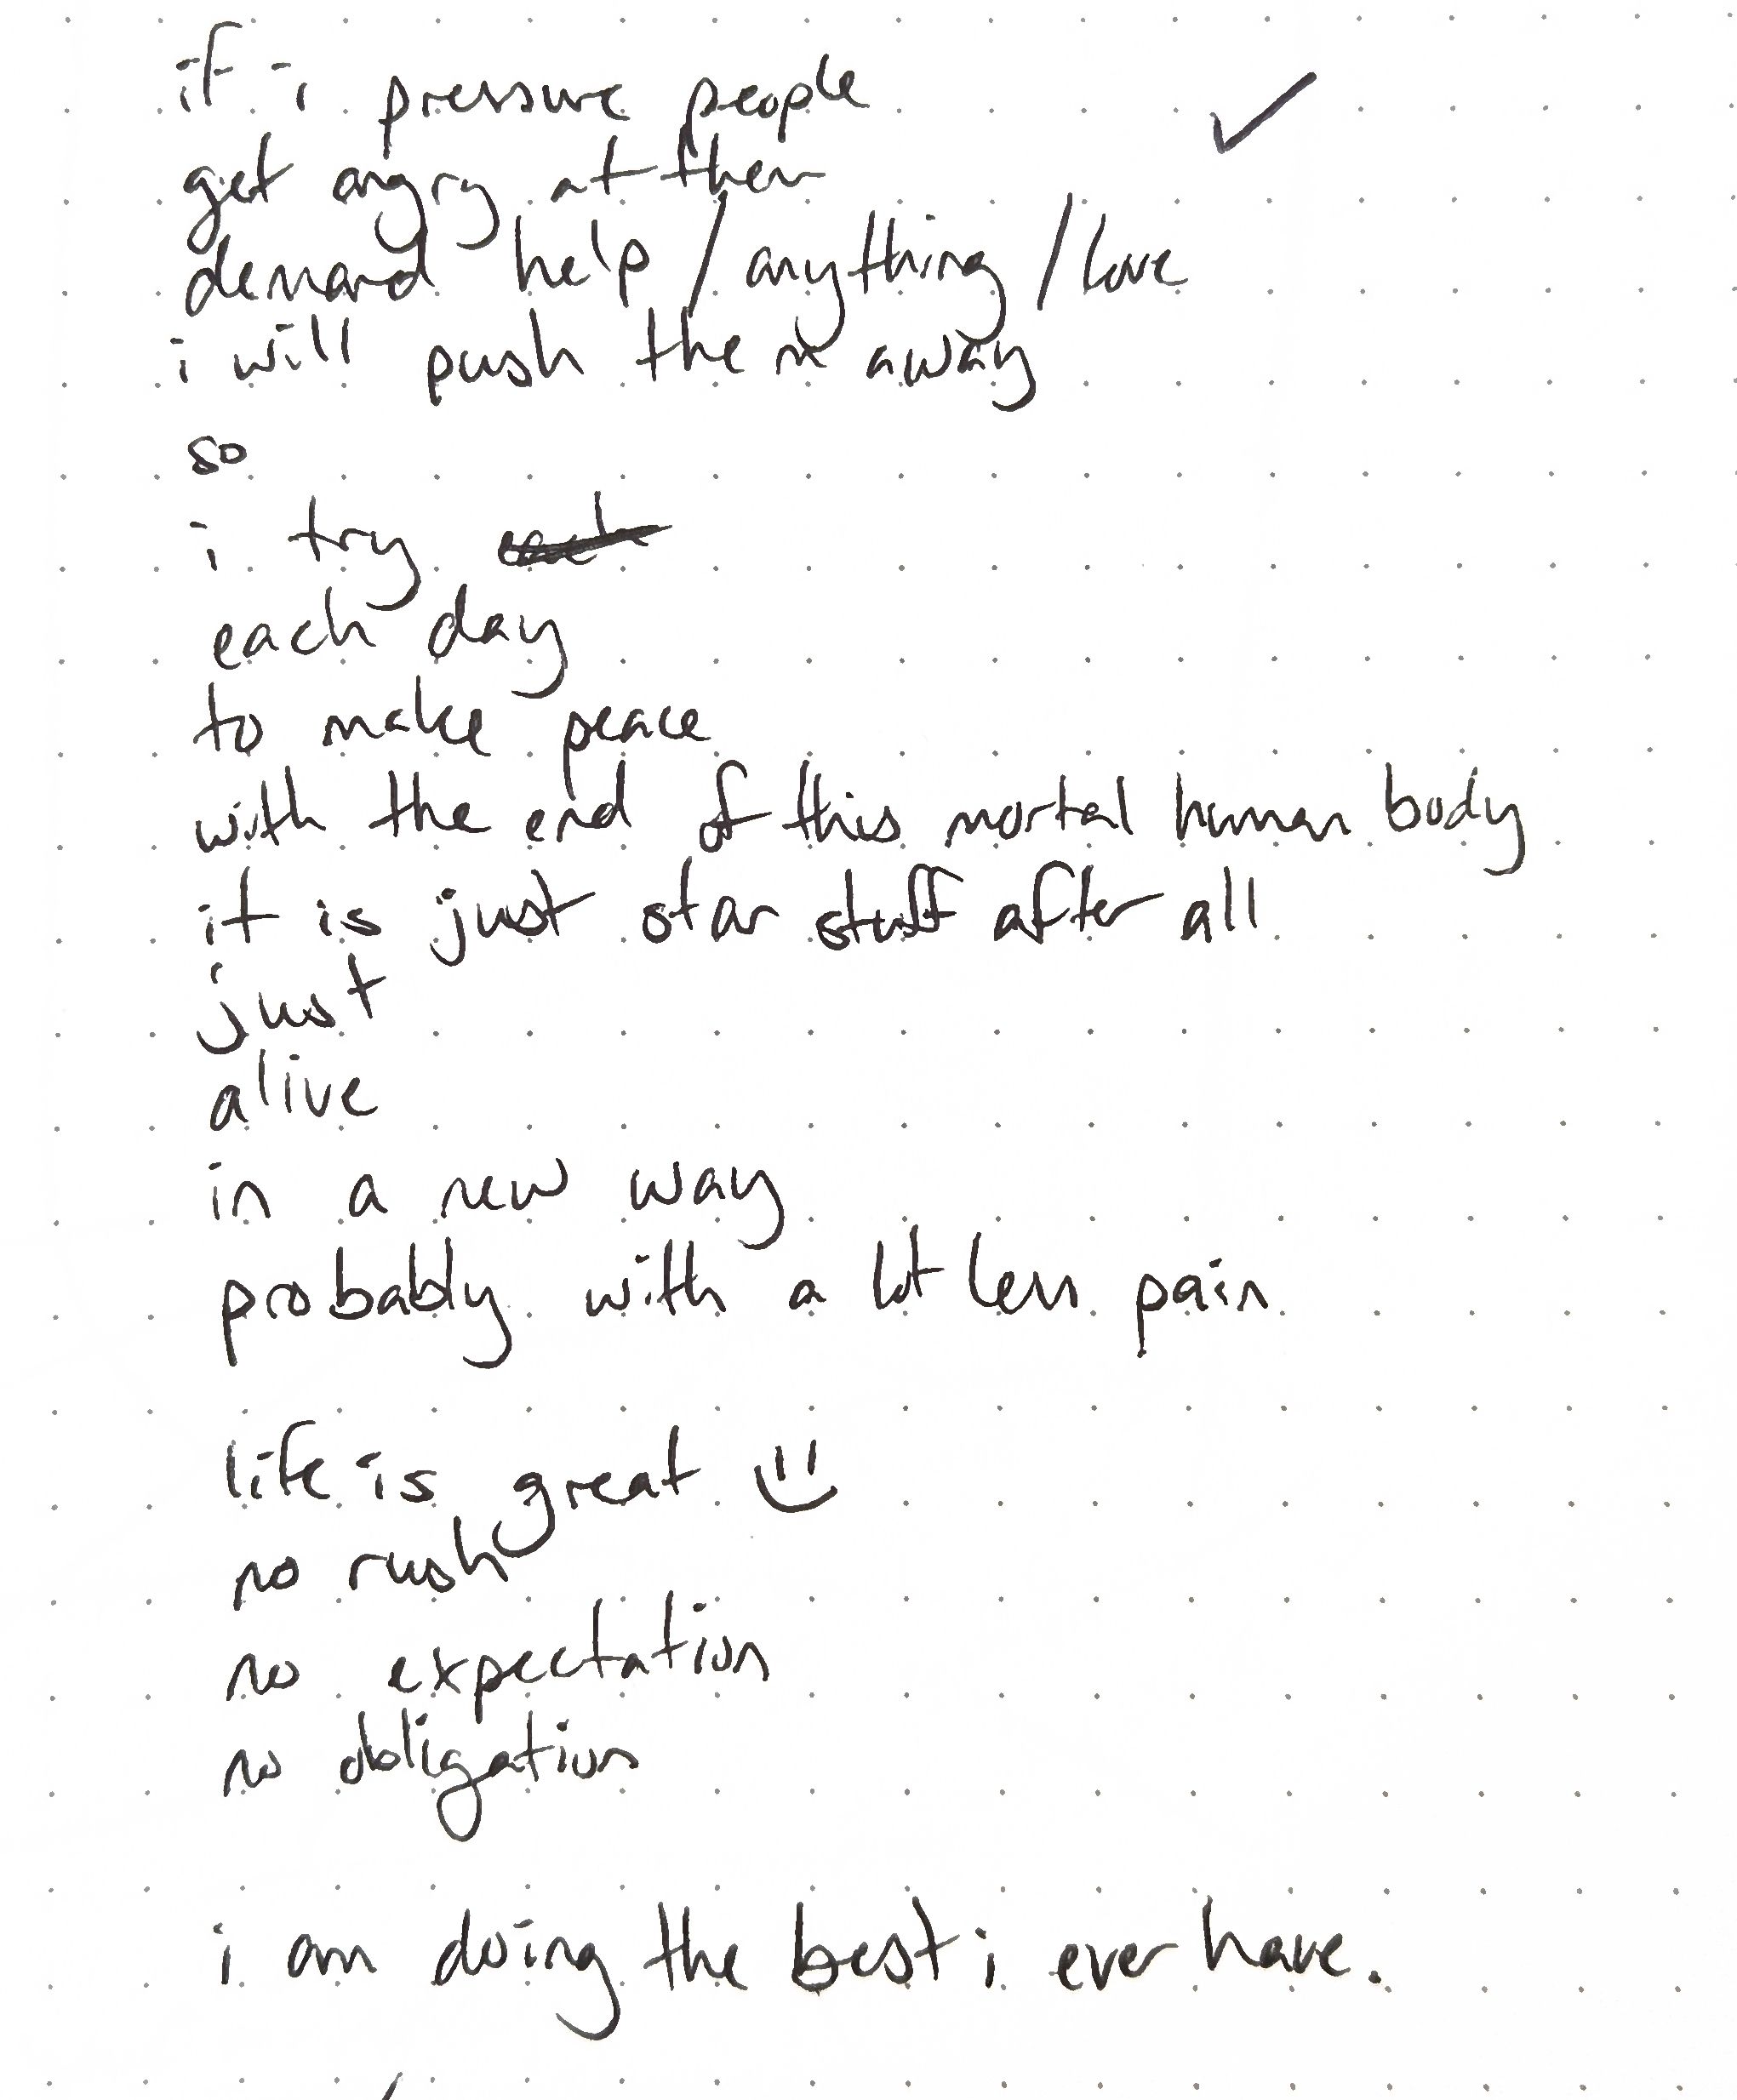 if i pressure people
get angry at them
demand help / anything / love
i will push them away
so
i try
each day
to make peace
with the end of this mortal human body
it is just star stuff after all
just
alive
in a new way
probably with a lot less pain
life is great
no rush
no expectation
no obligation
i am doing the best i ever have.